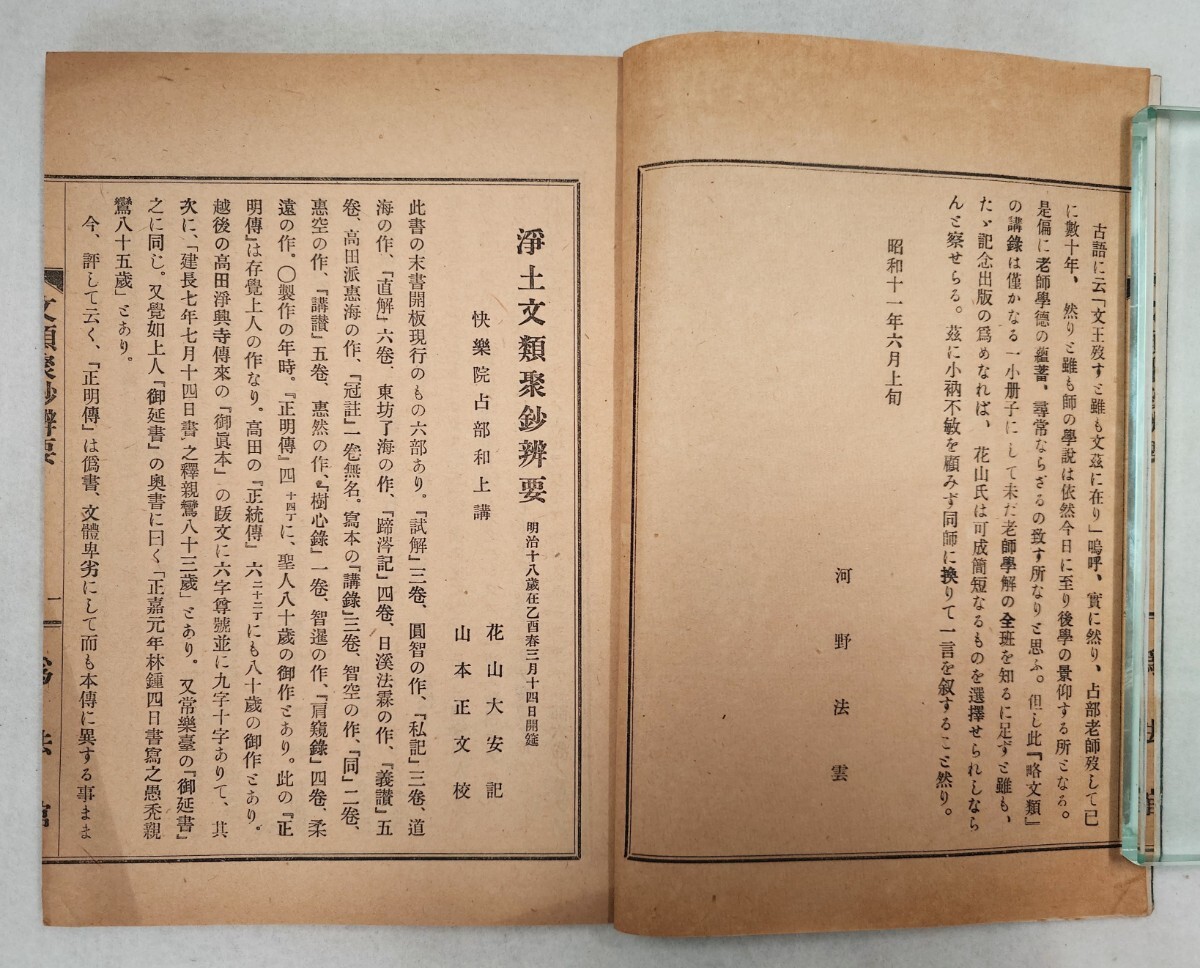 古語に云「文王歿すと雖も文茲に在り」嗚呼、實に然り、占部老師歿して已
に數十年、然りと雖も師の學說は依然今日に至り後學の景仰する所となる。
是偏に老師學德の蘊蓄、尋常ならざるの致す所なりと思ふ。但し此『略文類』
の講錄は僅かなる一小册子にして未だ老師學解の全班を知るに足ずと雖も、
たゞ記念出版の爲めなれば、花山氏は可成簡短なるものを選擇せられしなら
んと察せらる。茲に小衲不敏を顧みず同師に換りて一言を叙すること然り。
昭和十一年六月上旬
河野法雲
淨土文類聚鈔辨要 明治十八歲在乙酉春三月十四日開筵
快樂院占部和上講
花山大安記
山本正文校
此書の末書開板現行のもの六部あり。『試解』三卷、圓智の作、『私記』三卷、道
海の作、『直解』六卷、東坊了海の作、『蹄涔記』四卷、日溪法霖の作、『義讃』五
卷、高田派惠海の作、『冠註』一卷無名。寫本の『講錄』三卷、智空の作、『同』二卷、
惠空の作、『講讃』五卷、惠然の作、『樹心錄』一卷、智暹の作、『肩窺錄』四卷、柔
遠の作。〇製作の年時。『正明傳』四十四丁に、聖人八十歲の御作とあり。此の『正
明傳』は存覺上人の作なり。高田の『正統傳』六二十二丁にも八十歲の御作とあり。
越後の高田淨興寺傳來の『御眞本』の跋文に六字尊號並に九字十字ありて、其
次に、「建長七年七月十四日書之釋親鸞八十三歲」とあり。又常樂臺の『御延書』
之に同じ。又覺如上人『御延書』の奧書に曰く「正嘉元年林鍾四日書寫之愚禿親
鸞八十五歲」とあり。
今、評して云く、『正明傳』は僞書、文體卑劣にして而も本傳に異する事まま
文類聚鈔辨要
一